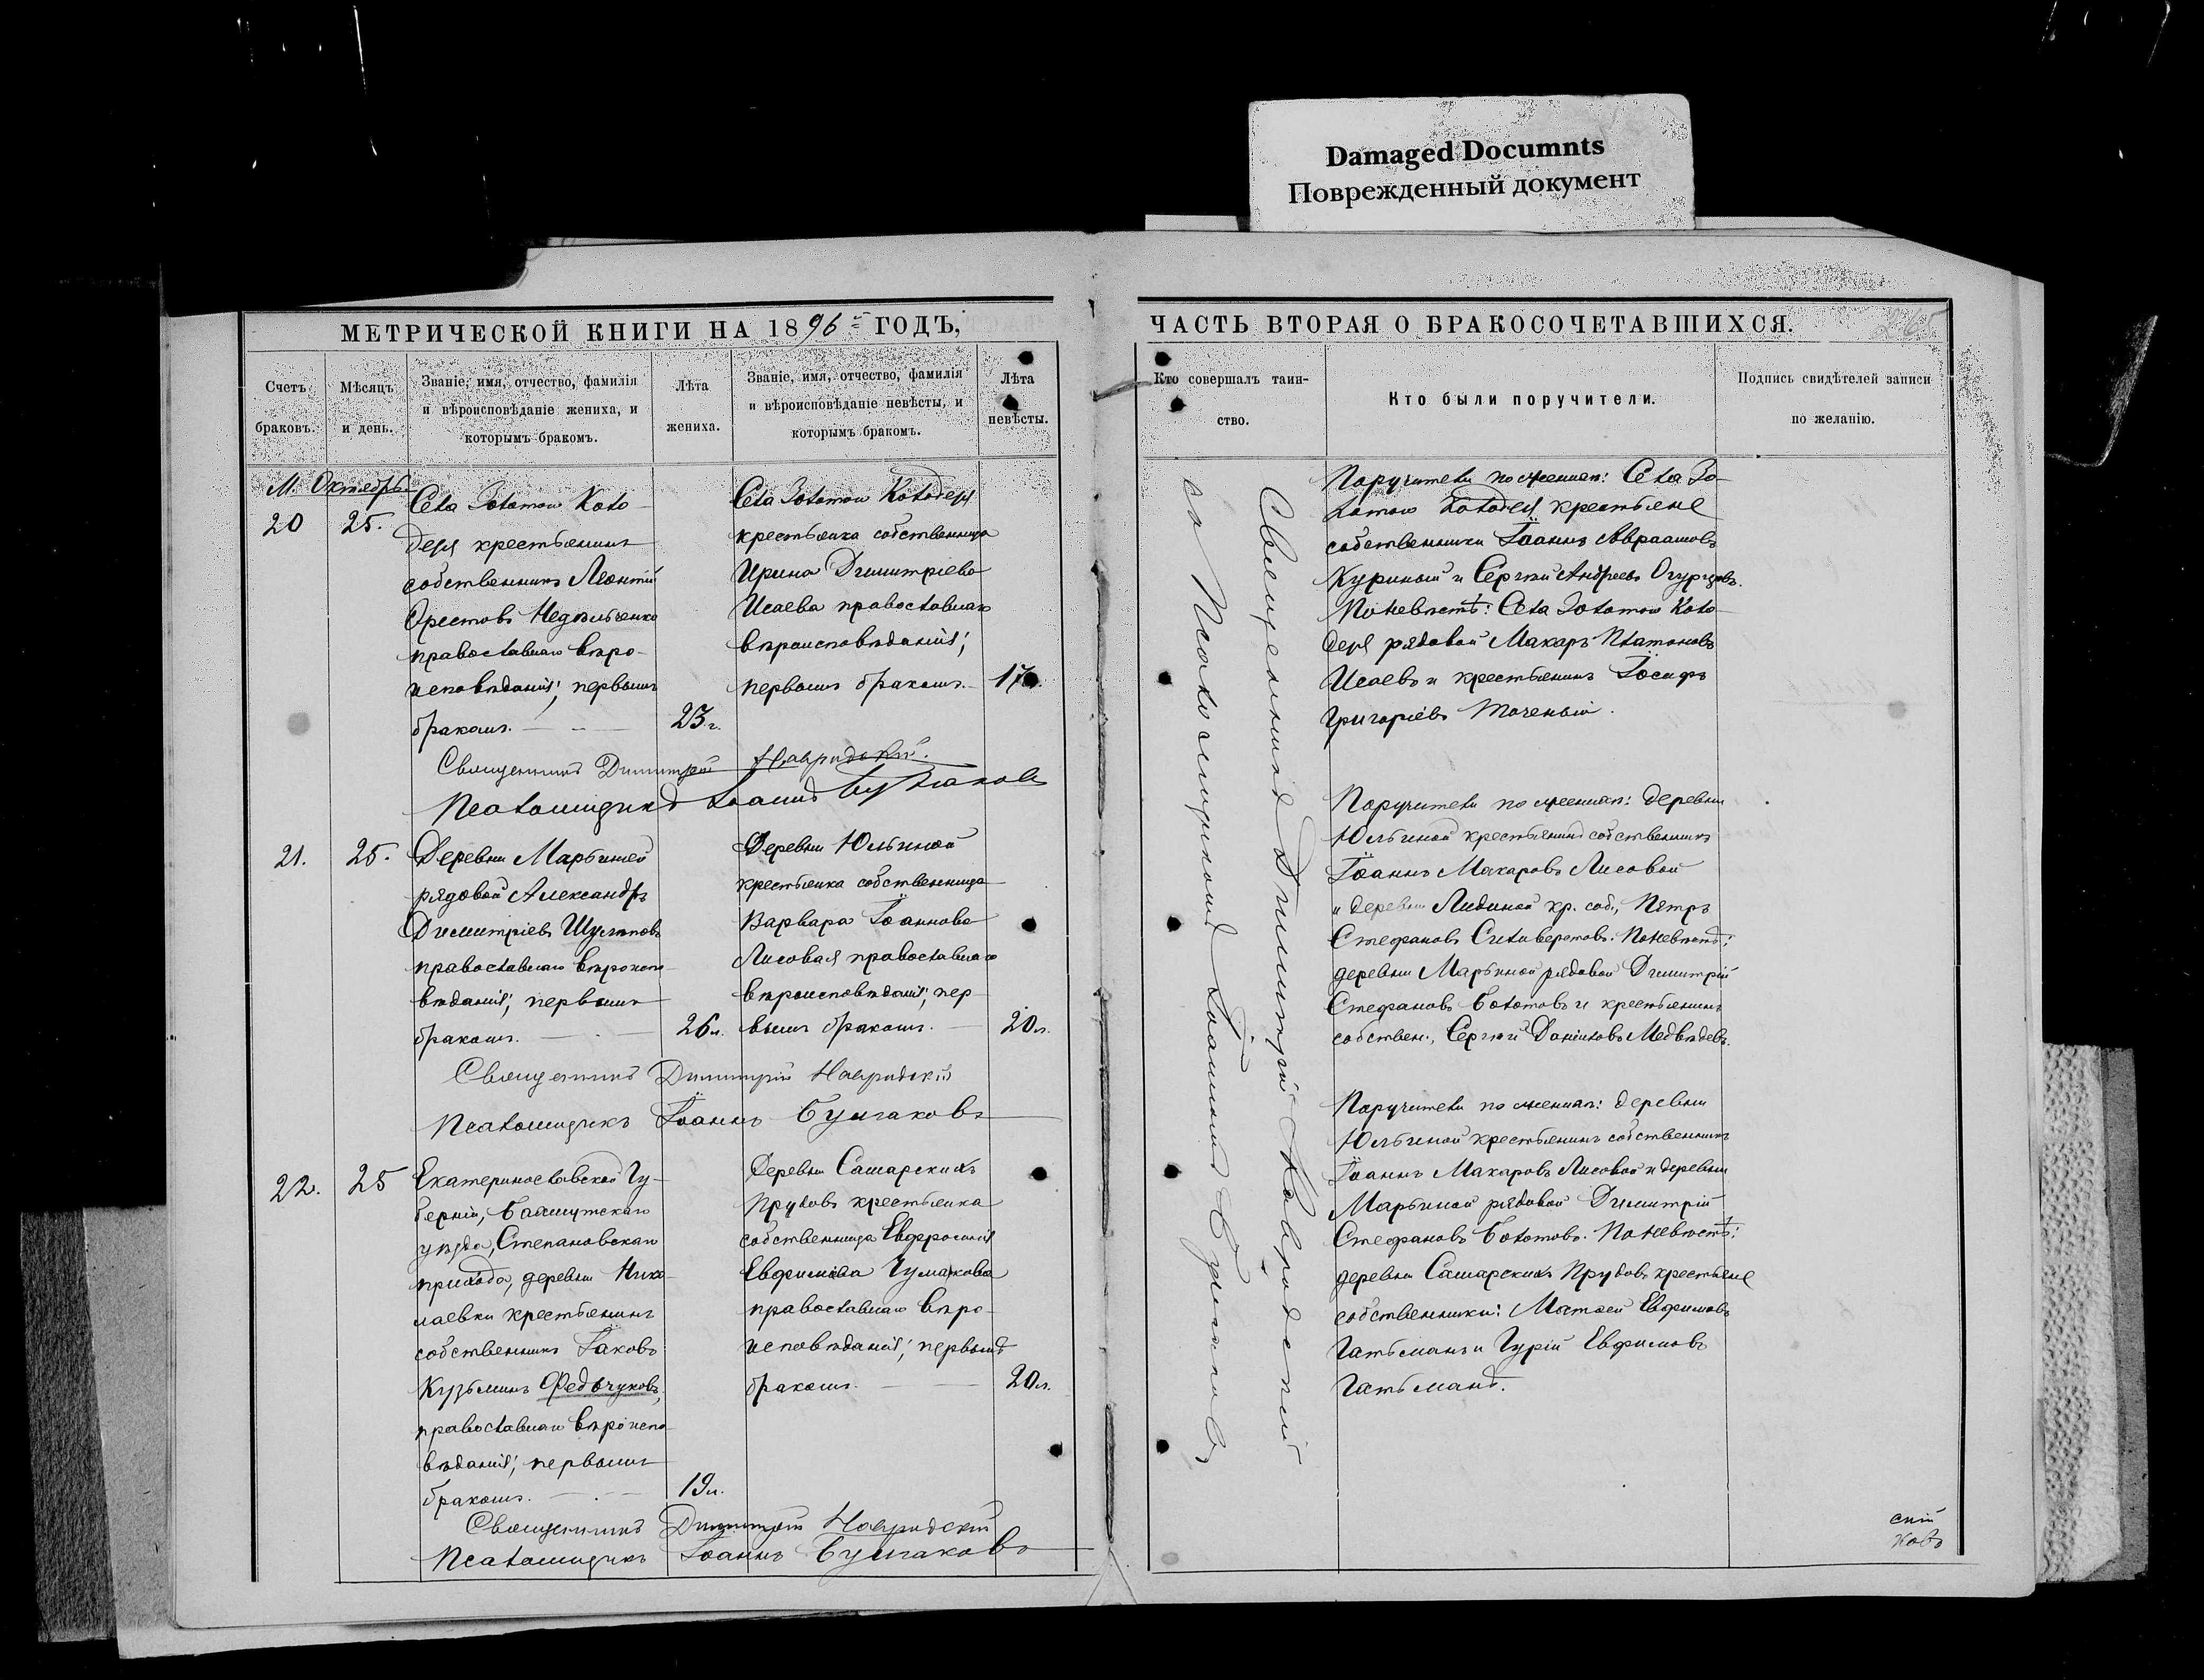 Damaged Documnts
Поврежденный документ
МЕТРИЧЕСКОЙ КНИГИ НА 1896й ГОДЪ,
Счетъ браковъ.
Мѣсяцъ и день.
Званіе, имя, отчество, фамилія
и вѣроисповѣданіе жениха, и
которымъ бракомъ.
Лѣта
жениха.
Званіе, имя, отчество, фамилія
и вѣроисповѣданіе невѣсты, и
которымъ бракомъ.
Лѣта
невѣсты.
М. Октябрь
20
25.
Села Золотого Коло-
дезя крестьянинъ
собственникъ Леонтій
Орестовъ Недѣльченко
православнаго вѣро-
исповѣданія; первымъ
бракомъ.
23 г.
Села Золотого Колодезя
крестьянка собственница
Ирина Димитріева
Исаева православнаго
вѣроисповѣданія;
первымъ бракомъ.
17
Священникъ Димитрій Навродскій.
Псаломщикъ Іоаннъ Булгаковъ
21.
25.
Деревни Марьиной
рядовой Александръ
Димитріевъ
православнаго вѣроиспо-
вѣданія; первымъ
бракомъ.
26 л.
Деревни Юльиной
крестьянка собственница
Варвара Іоаннова
Лисовая православнаго
вѣроисповѣданія; пер-
вымъ бракомъ.
20 л.
Священникъ Димитрій Навродскій
Псаломщикъ Іоаннъ Булгаковъ
22.
25
Екатеринославской Гу-
берніи, Бахмутскаго
уѣзда, Степановскаго
прихода, деревни Нико-
лаевки крестьянинъ
собственникъ Іаковъ
Кузьминъ Федьчуковъ,
православнаго вѣроиспо-
вѣданія; первымъ
бракомъ.
19 л.
Деревни Самарскихъ
Прудовъ крестьянка
собственница Евфросинія
Евфимова Чумакова
православнаго вѣро-
исповѣданія; первымъ
бракомъ.
20 л.
Священникъ Димитрій Навродскій
Псаломщикъ Іоаннъ Булгаковъ
ЧАСТЬ ВТОРАЯ О БРАКОСОЧЕТАВШИХСЯ.
265
Кто совершалъ таин-
ство.
Кто были поручители.
Подпись свидѣтелей записи
по желанію.
Священникъ Димитрій Навродскій
съ Псаломщикомъ Іоанномъ Булгаковъ
Поручители по женихѣ: Села Зо-
лотого Колодезя крестьяне
собственники Іоаннъ Авраамовъ
Куриный и Сергій Андреевъ Огурцовъ.
По невѣстѣ: Села Золотого Коло-
дезя рядовой Макаръ Платоновъ
Исаевъ и крестьянинъ Іосифъ
Григоріевъ Точеный.
Поручители по женихѣ: деревни
Юльиной крестьянинъ собственникъ
Іоаннъ Макаровъ Лисовой
и деревни Лидиной кр. соб., Петръ
Стефановъ Силиверстовъ. По невѣстѣ:
деревни Марьиной рядовой Димитрій
Стефановъ Болотовъ и крестьянинъ
собствен., Сергій Даниловъ Медвѣдевъ.
Поручители по женихѣ: деревни
Юльиной крестьянинъ собственникъ
Іоаннъ Макаровъ Лисовой и деревни
Марьиной рядовой Димитрій
Стефановъ Болотовъ. По невѣстѣ:
деревни Самарскихъ Прудовъ крестьяне
собственники: Матвей Евфимовъ
Гатьманъ и Гурій Евфимовъ
Гатьманъ.
скій
ковъ